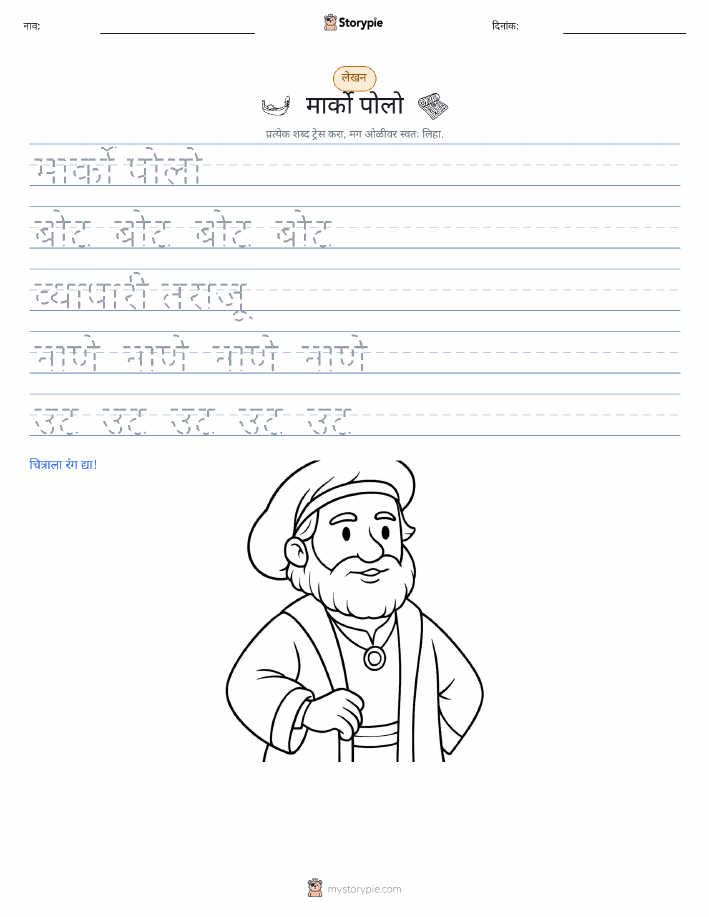 नाव:
Storypie
दिनांक:
लेखन
मार्को पोलो
प्रत्येक शब्द ट्रेस करा, मग ओळीवर स्वतः लिहा.
मार्को पोलो
बोट बोट बोट बोट
व्यापारी तराजू
नाणे नाणे नाणे नाणे
उट उट उट उट उट
चित्राला रंग द्या!
mystorypie.com